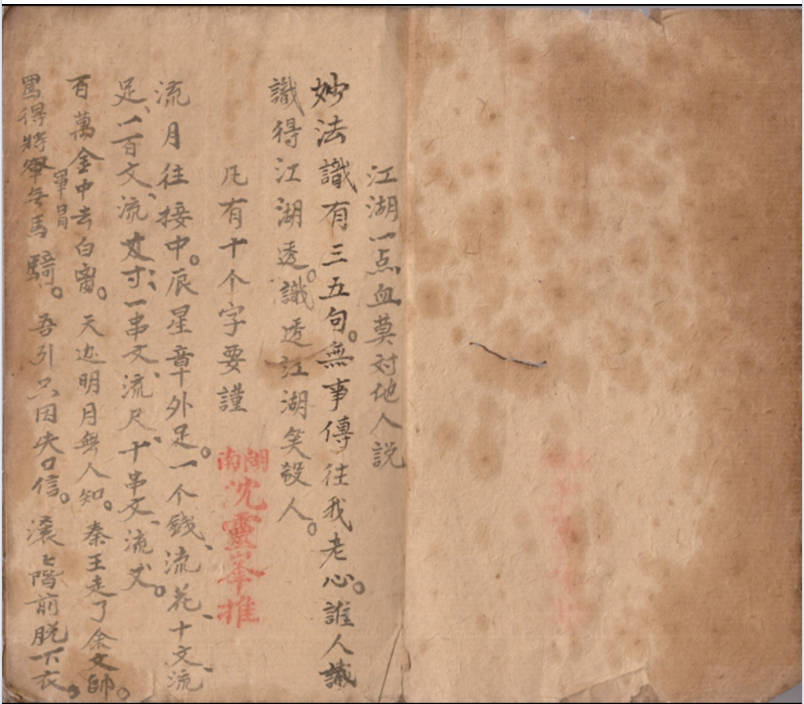 江湖一点血莫对他人説
妙法識有三五句。無事傳往我老心。誰人識
識得江湖透。識透江湖笑殺人。
凡有十个字要謹
湖南
沈靈峯推
流月往接中。辰星章外足。一个錢、流花、十文、流
足、一百文、流丈寸、一串文、流尺、十串文、流丈。
百萬金中去白蜜。天边明月無人知。秦王走了余文帥。
罵得將軍無馬騎。吾引只因失口信。滾上階前脱下衣。